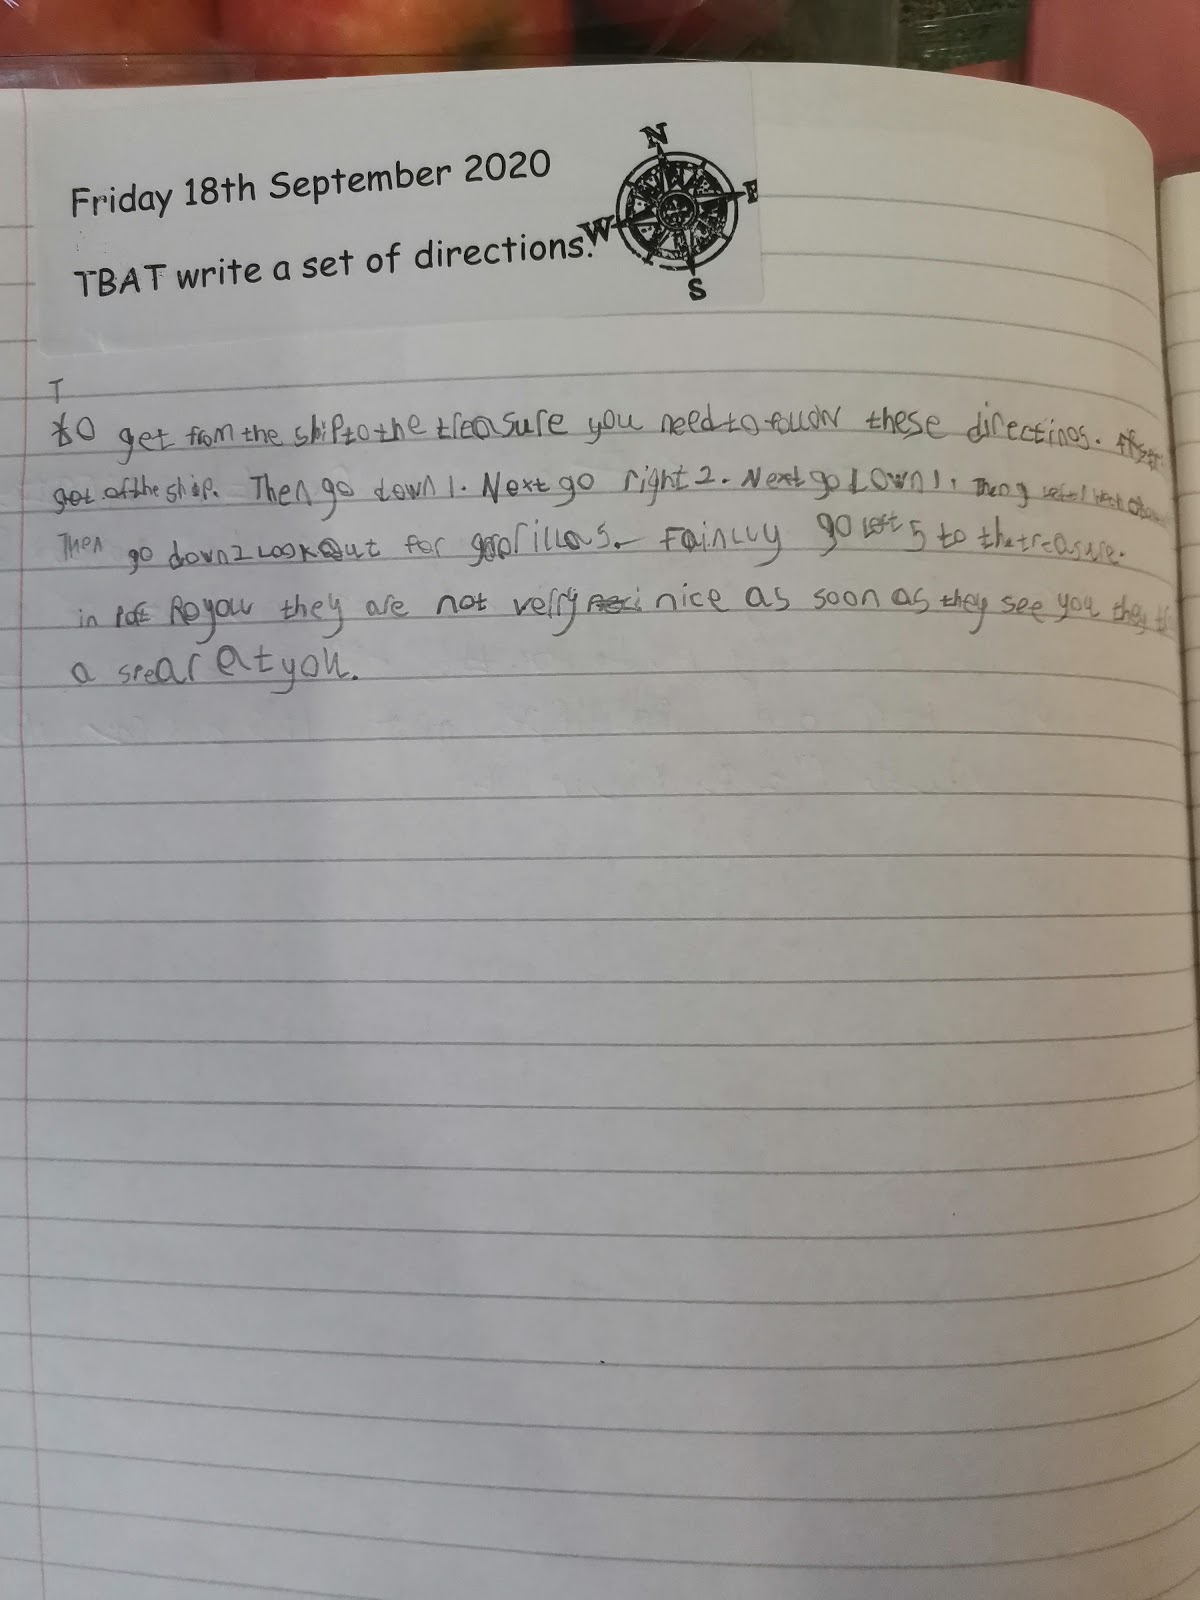 Friday 18th September 2020
TBAT write a set of directions.
N
W
E
S
T
to get from the ship to the treasure you need to follow these directinos. first
get of the ship. Then go down 1. Next go right 2. Next go down 1. Then g left 1
Then go down 2 Look out for gorillas. Fainlly go left 5 to the treasure.
in they are not verry nice as soon as they see you they
a spear at you.